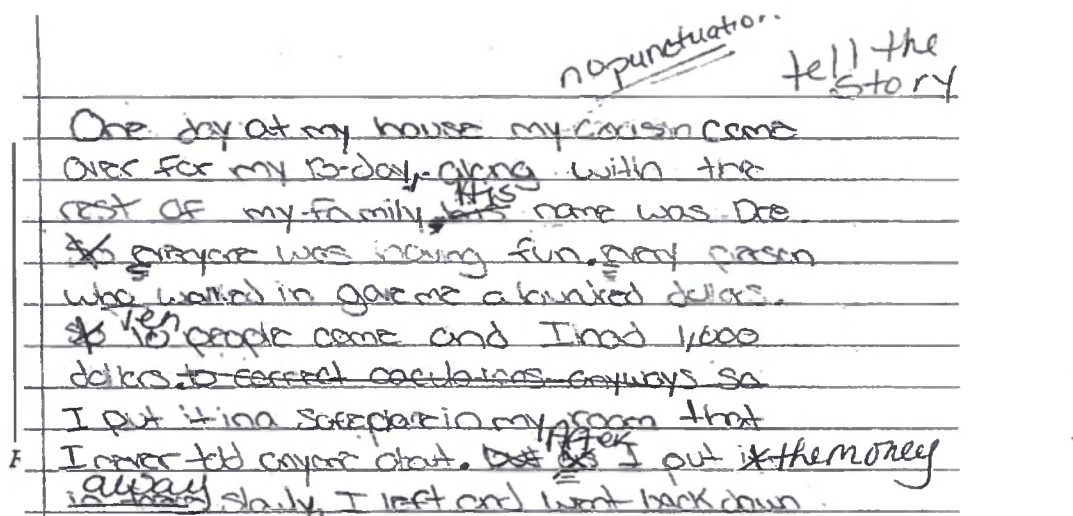 no punctuation
tell the
story
One day at my house my cousin came
over for my B-day, along with the
rest of my family. His name was Dre
everyone was having fun. every person
who walked in gave me a hundred dollars.
Ten 10 people come and I had 1,000
dollars. to correct anyways so
I put it in a safe place in my room that
I never told anyone about. but After I put it the money
away slowly, I left and went back down